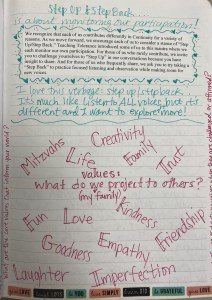 Step UP & Step Back
is about monitoring our participation!
We recognize that each of us contributes differently in Continuity for a variety of
reasons. As we move forward, we encourage each of us to consider a stance of "Step
Up/Step Back." Teaching Tolerance introduced some of us to this mantra where we
each monitor our own participation. For those of us who rarely contribute, we invite
you to challenge yourselves to "Step Up" in our conversations because you have
insight to share. And for those of us who frequently share, we ask you to try taking a
"Step Back" to practice focused listening and observation while making room for
new voices.
I love this verbage: step up/step back
It's much like Listen to ALL voices, but it's
different and I want to explore more!
Creativity
Mitzvahs
Life
Family
Trust
Values:
what do we project to others?
(my family)
Fun
Love
Kindness
Friendship
Goodness
Empathy
Laughter
Imperfection
LOVE
YOU
SIMPLY
be GRATEFUL
LOVE